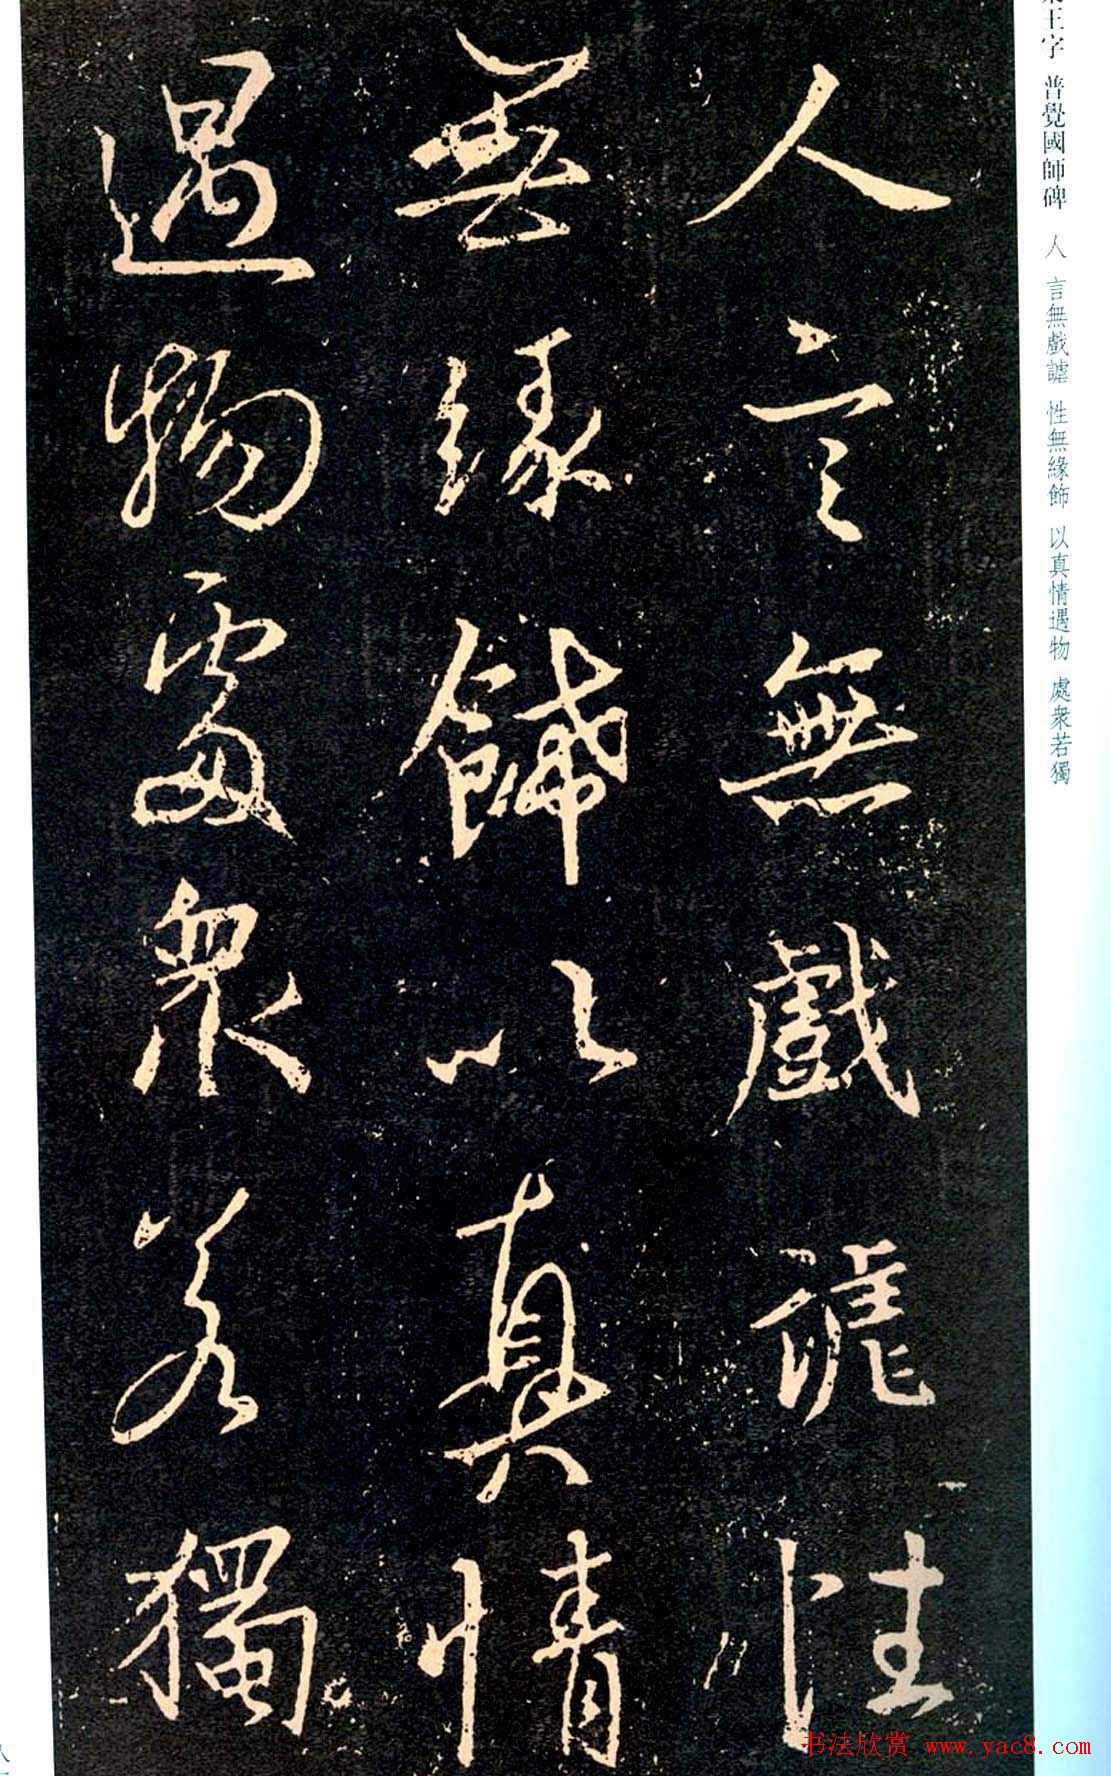 王字 普覺國師碑 人 言無戲謔 性無緣飾 以真情遇物 處衆若獨
人言無戲謔性
無緣飾以真情
遇物處衆若獨
书法欣赏 www.yac8.com